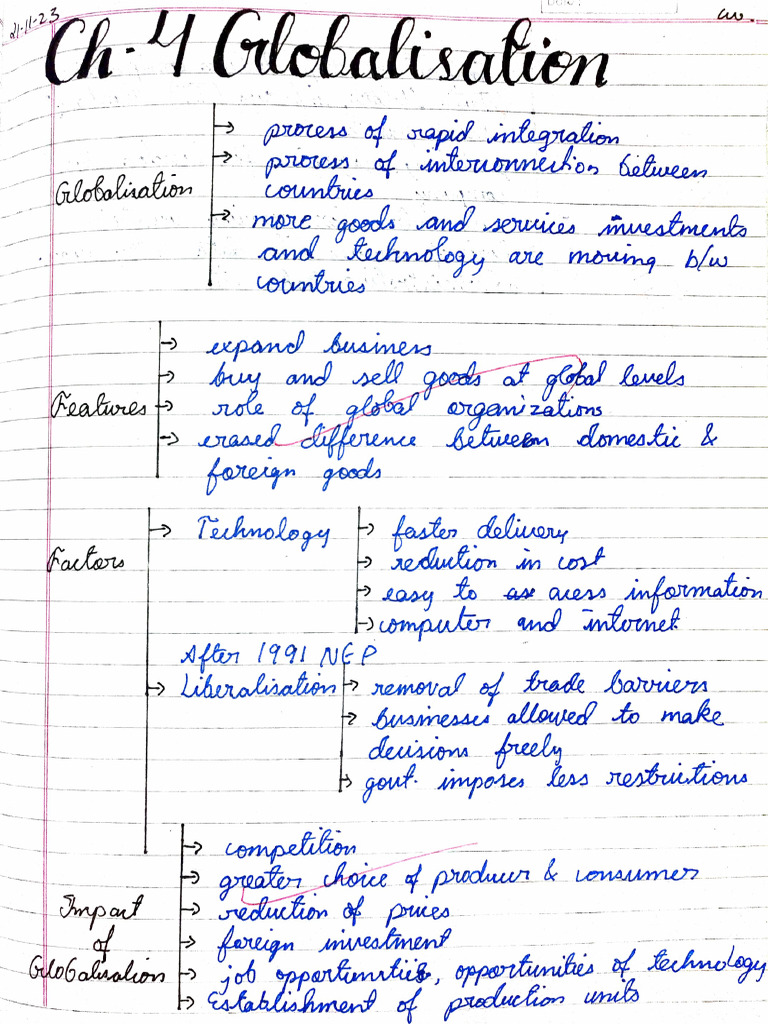 21-11-23
cw.
Ch-4 Globalisation
Globalisation
→ process of rapid integration
→ process of interconnection between
countries
→ more goods and services investments
and technology are moving b/w
countries
Features
→ expand business
→ buy and sell goods at global levels
→ role of global organizations
→ erased difference between domestic &
foreign goods
Factors
→ Technology
→ faster delivery
→ reduction in cost
→ easy to acess information
→ computer and internet
After 1991 NEP
→ Liberalisation
→ removal of trade barriers
→ businesses allowed to make
decisions freely
→ govt. imposes less restrictions
Impact
of
Globalisation
→ competition
→ greater choice of producer & consumer
→ reduction of prices
→ foreign investment
→ job opportunities, opportunities of technology
→ Establishment of production units